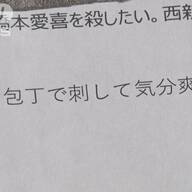 橋本愛喜を殺したい。西新
包丁で刺して気分爽